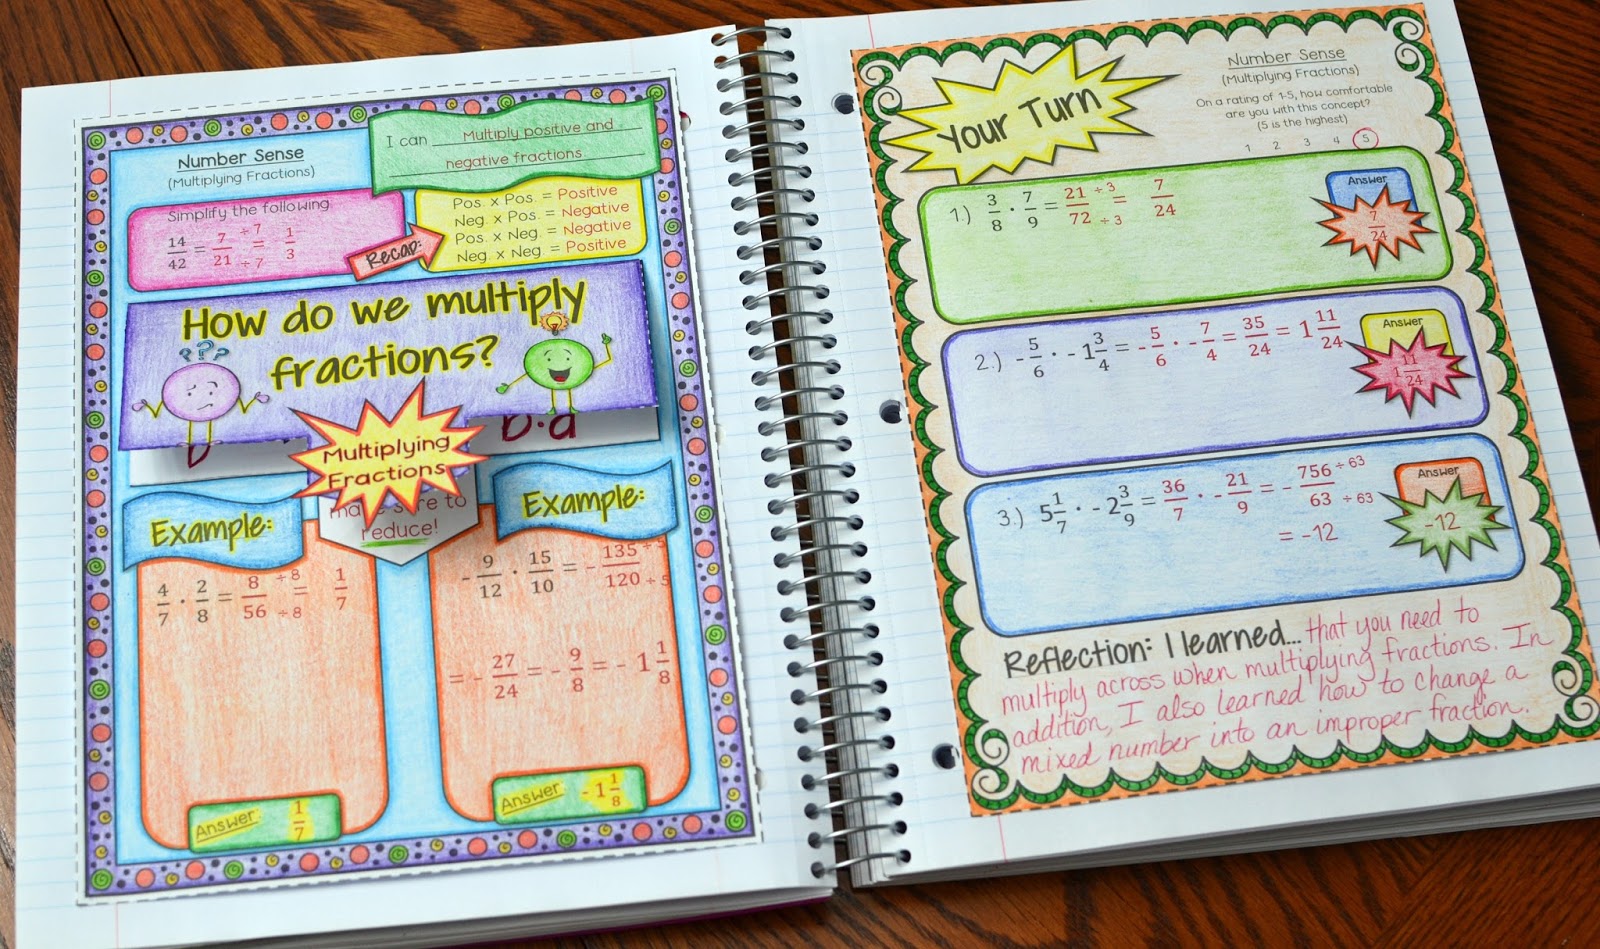 Number Sense
(Multiplying Fractions)
I can Multiply positive and
negative fractions
Simplify the following
14/42 = 7/21 ÷ 7/÷ 7 = 1/3
Recap:
Pos. x Pos. = Positive
Neg. x Pos. = Negative
Pos. x Neg. = Negative
Neg. x Neg. = Positive
How do we multiply
fractions?
???
b·d
Multiplying
Fractions
make sure to
reduce!
Example:
4/7 · 2/8 = 8/56 ÷ 8/÷ 8 = 1/7
Answer 1/7
Example:
-9/12 · 15/10 = -135/120 ÷ 5/÷ 5
= -27/24 = -9/8 = -1 1/8
Answer -1 1/8
Your Turn
Number Sense
(Multiplying Fractions)
On a rating of 1-5, how comfortable
are you with this concept?
(5 is the highest)
1 2 3 4 5
1.) 3/8 · 7/9 = 21/72 ÷ 3/÷ 3 = 7/24
Answer
7/24
2.) -5/6 · -1 3/4 = -5/6 · -7/4 = 35/24 = 1 11/24
Answer
1 11/24
3.) 5 1/7 · -2 3/9 = 36/7 · -21/9 = -756/63 ÷ 63/÷ 63
= -12
Answer
-12
Reflection: I learned... that you need to
multiply across when multiplying fractions. In
addition, I also learned how to change a
mixed number into an improper fraction.